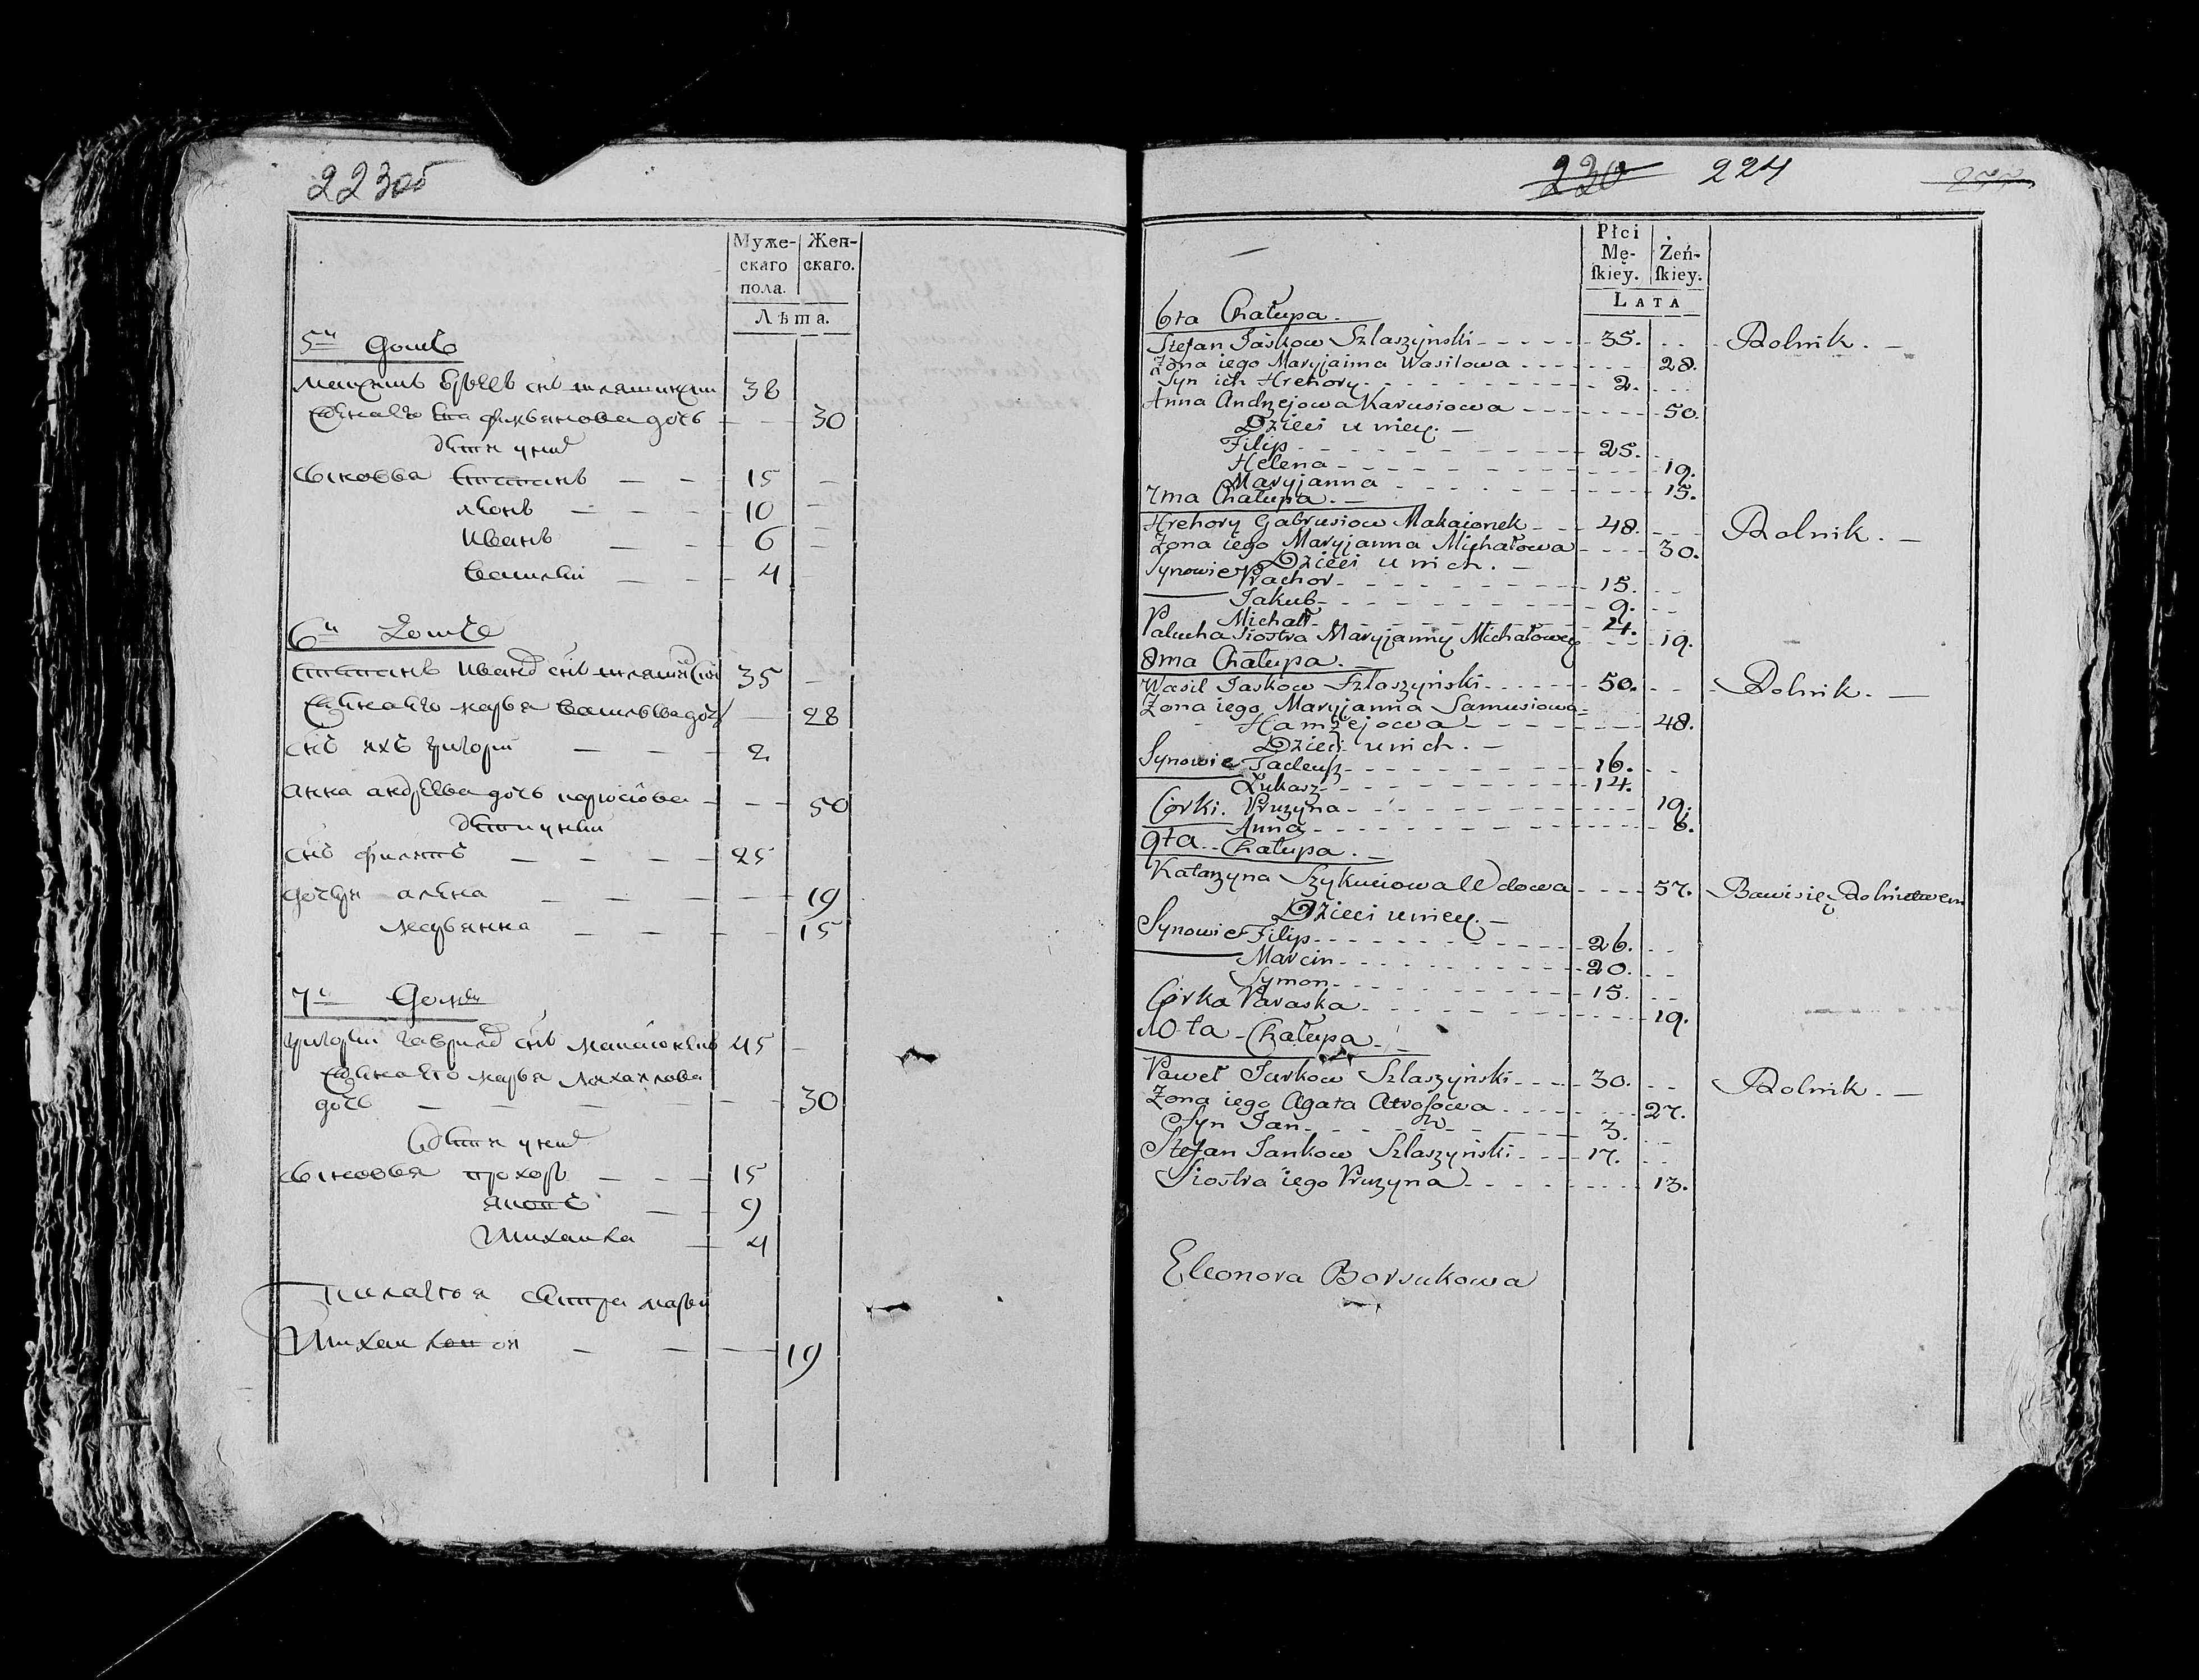 223об
Муже-
скаго
пола.
Жен-
скаго.
Лѣта.
5й домъ
38
жена его дочь 30
дѣти у нихъ
сыновья Степанъ — — 15
Леонъ — — 10
Иванъ — — 6
Василій — — 4
6й домъ
Степанъ Ивановъ снъ 35
жена его Марья Васильева дочь — 28
снъ ихъ Григорій — — — 2
Анна Андреева дочь — — 50
дѣти у ней
снъ Филипъ — — — 25
дочери Алена — — — 19
Марьянна — — — 15
7й домъ
Григорій Гаврилов снъ 45
жена его Марья Михайлова
дочь — — — 30
дѣти у них
сыновья Прохоръ — — — 15
Якопъ — 9
Михайла — 4
сестра Марьи
— — 19
230 224
Płci
Mę-
ſkiey.
Żeń-
ſkiey.
LATA
6ta Chałupa. —
Stefan Jaśkow Szlaszyński - - - - - 35. - - - Rolnik. —
Żona iego Maryjanna Wasilowa - - - - 28.
Syn ich Hrehory - - - - - 2. - - -
Anna Andrzejowa Karusiowa - - - - 50.
Dzieci u niey. —
Filip - - - - - 25. - -
Helena - - - - - 19.
Maryjanna - - - - - 15.
7ma Chałupa. —
Hrehory Gabrusiow Makaionek - - - 48. - - - Rolnik. —
Żona iego Maryjanna Michałowa - - - - 30.
Dzieci u nich. —
Synowie Prachor - - - - - 15. - -
Jakub - - - - - 9. - -
Michał - - - - - 4. - -
Palucha siostra Maryjanny Michałowey - - - 19.
8ma Chałupa. —
Wasil Jaskow Szlaszyński - - - - - 50. - - - Rolnik. —
Żona iego Maryjanna Samusiowa
Hamżejowa - - - - - 48.
Dzieci u nich. —
Synowie Tadeuſz - - - - - 16. - -
Łukasz - - - - - 14.
Córki. Pruzyna - - - - - 19.
Anna - - - - - 8.
9ta - Chałupa. —
Katarzyna Szykuciowa Wdowa - - - - 57. Bawi się Rolnictwem
Dzieci u niey. —
Synowie Filip - - - - - 26. - -
Marcin - - - - - 20. - -
Symon - - - - - 15. - -
Córka Paraska - - - - - 19.
10-ta - Chałupa - -
Paweł Jurkow Szlaszyński - - - - 30. - - Rolnik. —
Żona iego Agata - - - - 27.
Syn Jan - - - - - 3. - -
Stefan Jankow Szlaszyński - - - 17. - -
Siostra iego Pruzyna - - - - - 13.
Eleonora Borsukowa